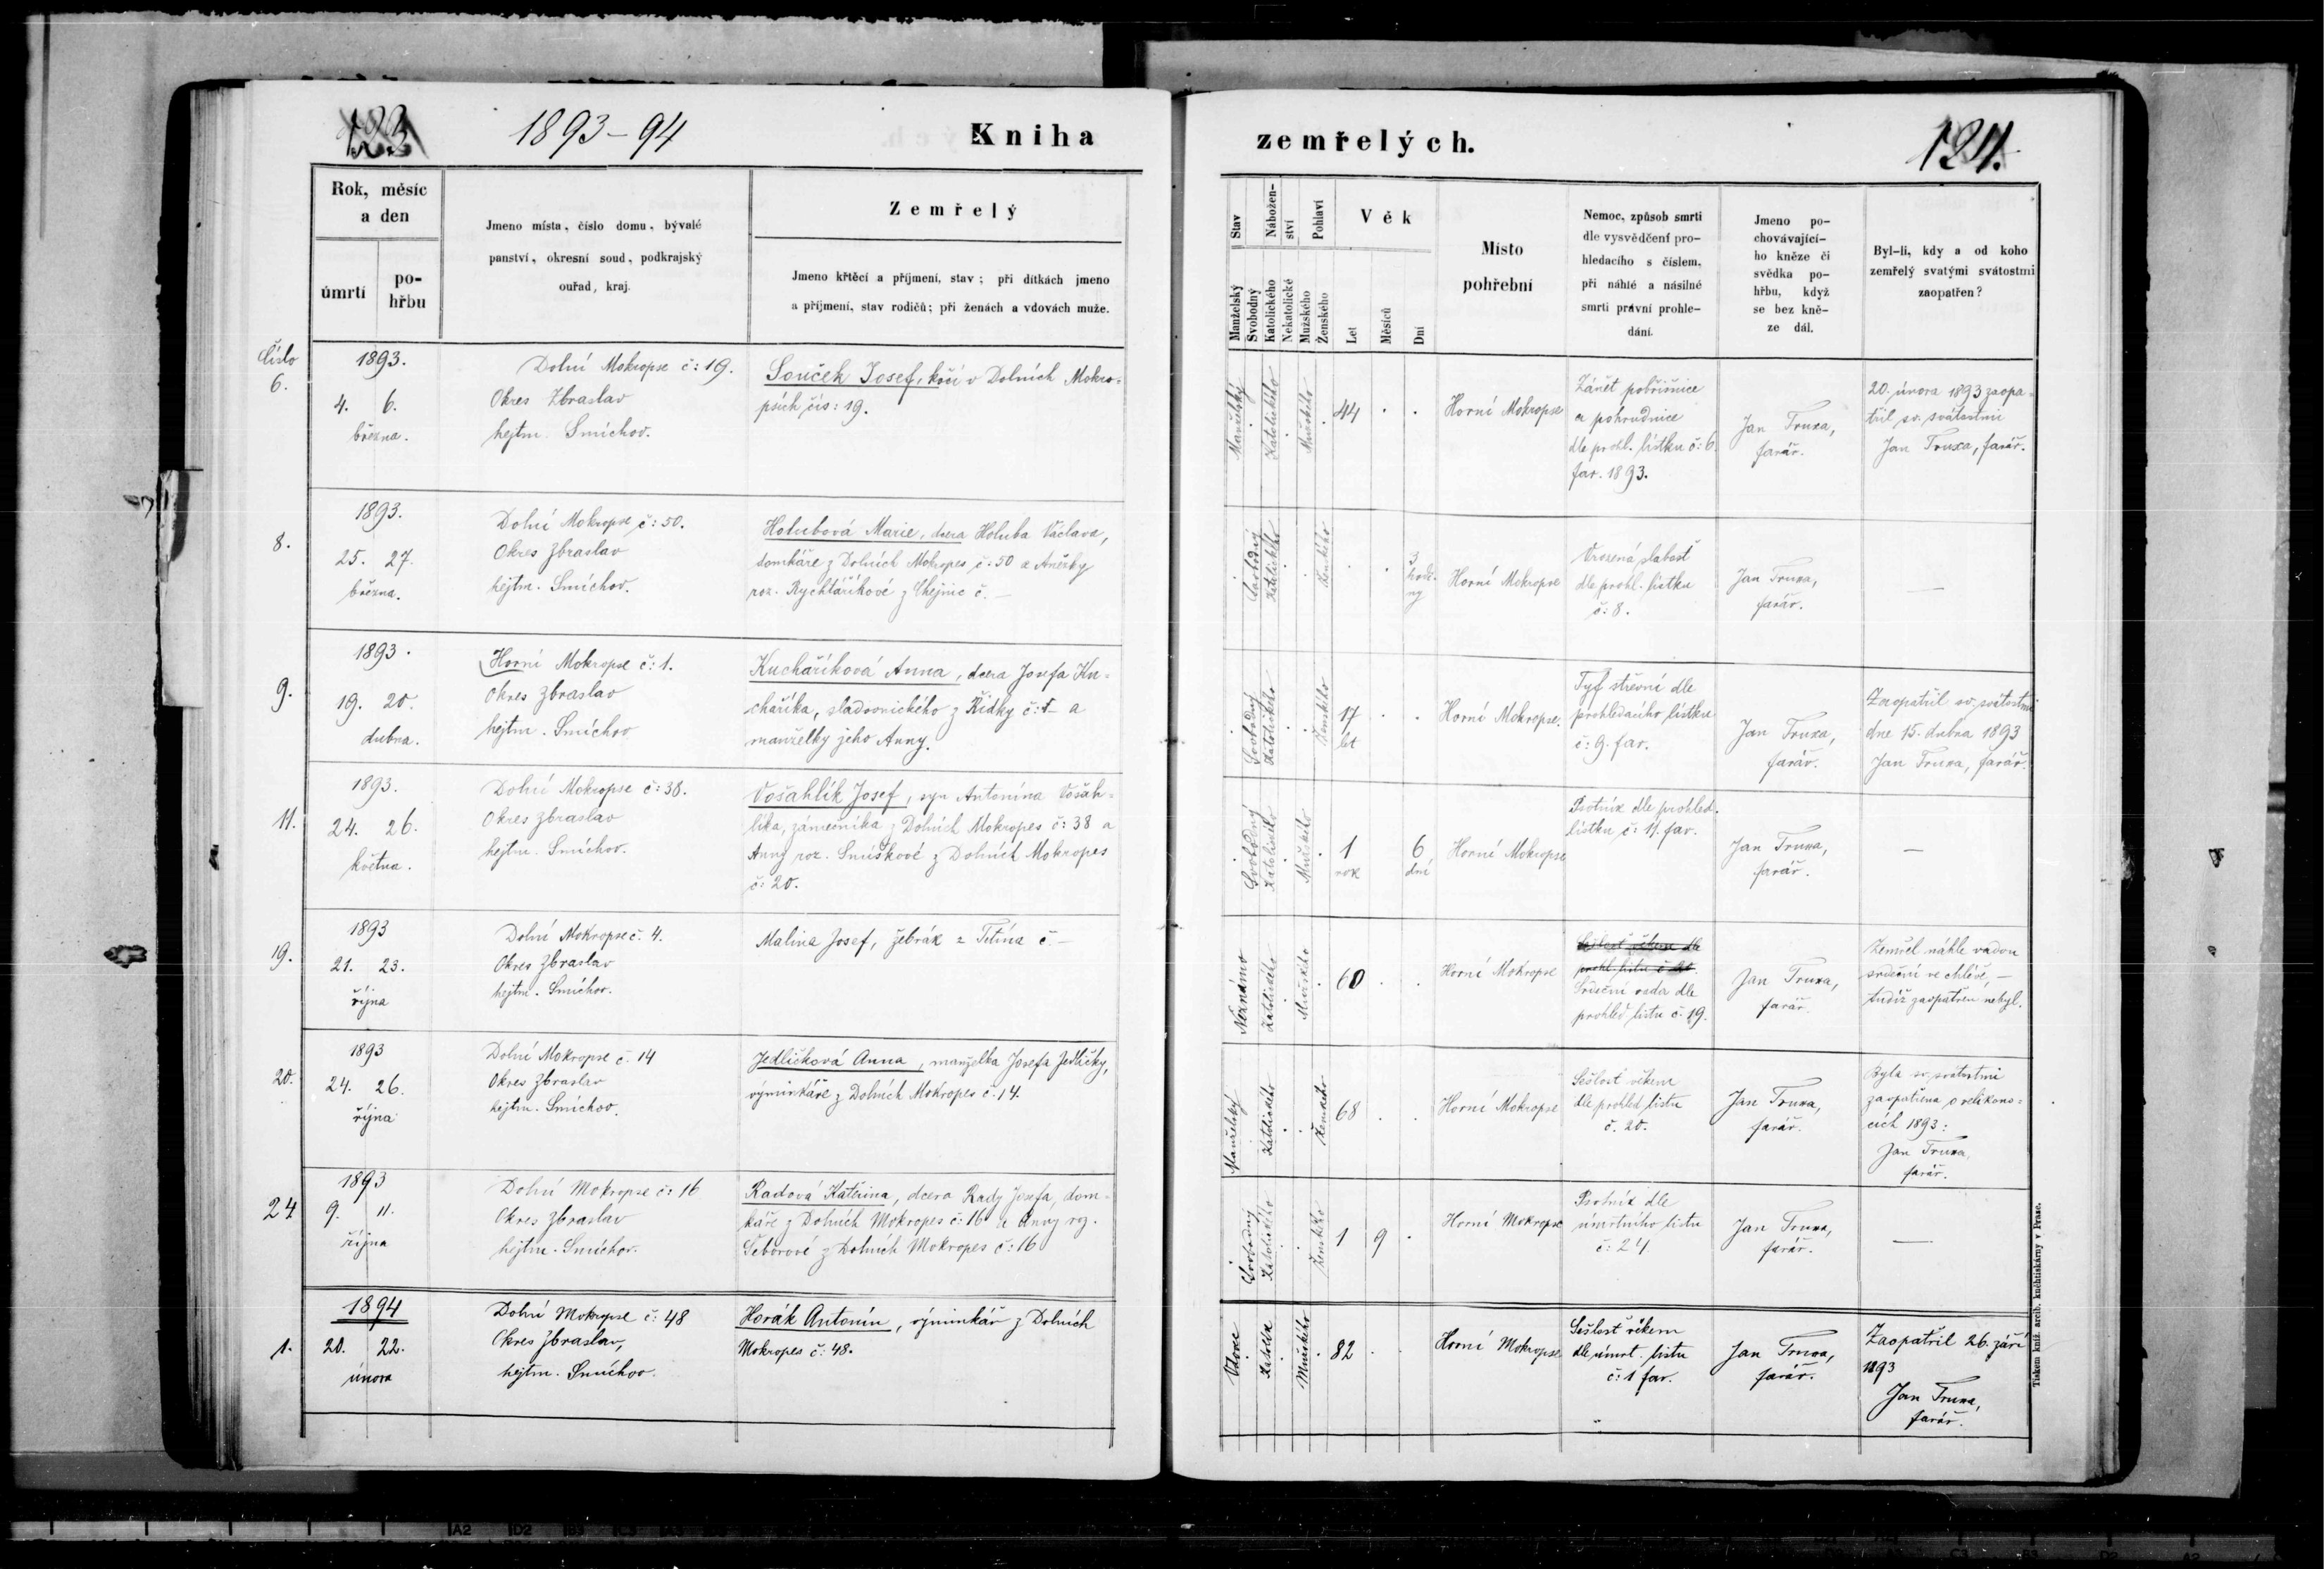 123
1893-94
Kniha
zemřelých.
124.
Rok, měsíc
a den
úmrtí
po-
hřbu
Jmeno místa, číslo domu, bývalé
panství, okresní soud, podkrajský
ouřad, kraj.
Zemřelý
Jmeno křtěcí a příjmení, stav; při dítkách jmeno
a příjmení, stav rodičů; při ženách a vdovách muže.
Stav
Manželský
Svobodný
Nábožen-
ství
Katolického
Nekatolické
Pohlaví
Mužského
Ženského
Věk
Let
Měsíců
Dní
Místo
pohřební
Nemoc, způsob smrti
dle vysvědčení pro-
hledacího s číslem,
při náhlé a násilné
smrti právní prohle-
dání.
Jmeno po-
chovávající-
ho kněze či
svědka po-
hřbu, když
se bez kně-
ze dál.
Byl-li, kdy a od koho
zemřelý svatými svátostmi
zaopatřen?
Číslo
6.
1893.
4. 6.
března.
Dolní Mokropse č: 19.
Okres Zbraslav
hejtm. Smíchov.
Souček Josef, kočí v Dolních Mokro=
psích čís: 19.
Manželský
Katolického
Mužského
44
Horní Mokropse
Zánět pobřišnice
a pohrudnice
dle prohl. lístku č: 6
far. 1893.
Jan Truxa,
farář.
20. února 1893 zaopa=
třil sv. svátostmi
Jan Truxa, farář.
8.
1893.
25. 27.
března.
Dolní Mokropse č: 50.
Okres Zbraslav
hejtm. Smíchov.
Holubová Marie, dcera Holuba Václava,
domkáře z Dolních Mokropes č: 50 a Anežky
roz. Rychtaříkové z Chejnic č. -
Svobodný
Katolického
Ženského
3
hodi-
ny
Horní Mokropse
Vrozená slabosť
dle prohl. lístku
č: 8.
Jan Truxa,
farář.
—
9.
1893.
19. 20.
dubna.
Horní Mokropse č: 1.
Okres Zbraslav
hejtm. Smíchov
Kuchaříková Anna, dcera Josefa Ku=
chaříka, sladovnického z Řídky č: 1 a
manželky jeho Anny.
Svobodný
Katolického
Ženského
17
let
Horní Mokropse.
Tyf střevní dle
prohledacího lístku
č: 9. far.
Jan Truxa,
farář.
Zaopatřil sv. svátostmi
dne 15. dubna 1893
Jan Truxa, farář.
11.
1893.
24. 26.
května.
Dolní Mokropse č: 38.
Okres Zbraslav
hejtm. Smíchov.
Vošahlík Josef, syn Antonína Vošah=
líka, zámečníka z Dolních Mokropes č: 38 a
Anny roz. Smíškové z Dolních Mokropes
č: 20.
Svobodný
Katolického
Mužského
1
rok
6
dní
Horní Mokropse
Psotník dle prohled.
lístku č: 11. far.
Jan Truxa,
farář.
—
19.
1893
21. 23.
října
Dolní Mokropse č. 4.
Okres Zbraslav
hejtm. Smíchov.
Malina Josef, žebrák z Tetína č. -
Neznámo
Katolického
Mužského
60
Horní Mokropse
Sešlosť věkem dle
prohl. listu č. 20.
Srdeční vada dle
prohled listu č. 19.
Jan Truxa,
farář.
Zemřel náhle vadou
srdeční ve chlévě, —
tudíž zaopatřen nebyl.
20.
1893
24. 26.
října
Dolní Mokropse č. 14
Okres Zbraslav
hejtm. Smíchov.
Jedličková Anna, manželka Josefa Jedličky,
výminkáře z Dolních Mokropes č. 14.
Manželský
Katolického
Ženského
68
Horní Mokropse
Sešlosť věkem
dle prohled listu
č. 20.
Jan Truxa,
farář.
Byla sv. svátostmi
zaopatřena o velikono=
cích 1893:
Jan Truxa,
farář.
24
1893
9. 11.
října
Dolní Mokropse č: 16
Okres Zbraslav
hejtm. Smíchov.
Radová Kateřina, dcera Rady Josefa, dom=
káře z Dolních Mokropes č: 16 a Anny roz.
Šeborové z Dolních Mokropes č: 16
Svobodný
Katolického
Ženského
1
9
Horní Mokropse
Psotník dle
úmrtního listu
č: 24
Jan Truxa,
farář.
—
1.
1894
20. 22.
února
Dolní Mokropse č: 48
Okres Zbraslav,
hejtm. Smíchov.
Horák Antonín, výminkář z Dolních
Mokropes č: 48.
Vdovec
Mužského
82
Horní Mokropse
Sešlosť věkem
dle úmrt. listu
č: 1 far.
Jan Truxa,
farář.
Zaopatřil 26. září
1893
Jan Truxa,
farář.
Tiskem kníž. arcib. knihtiskárny v Praze.